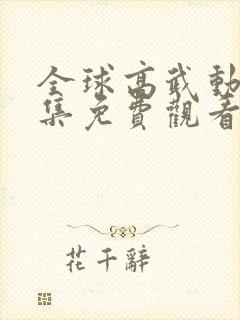 全球高武動
集免費觀看
花千辭